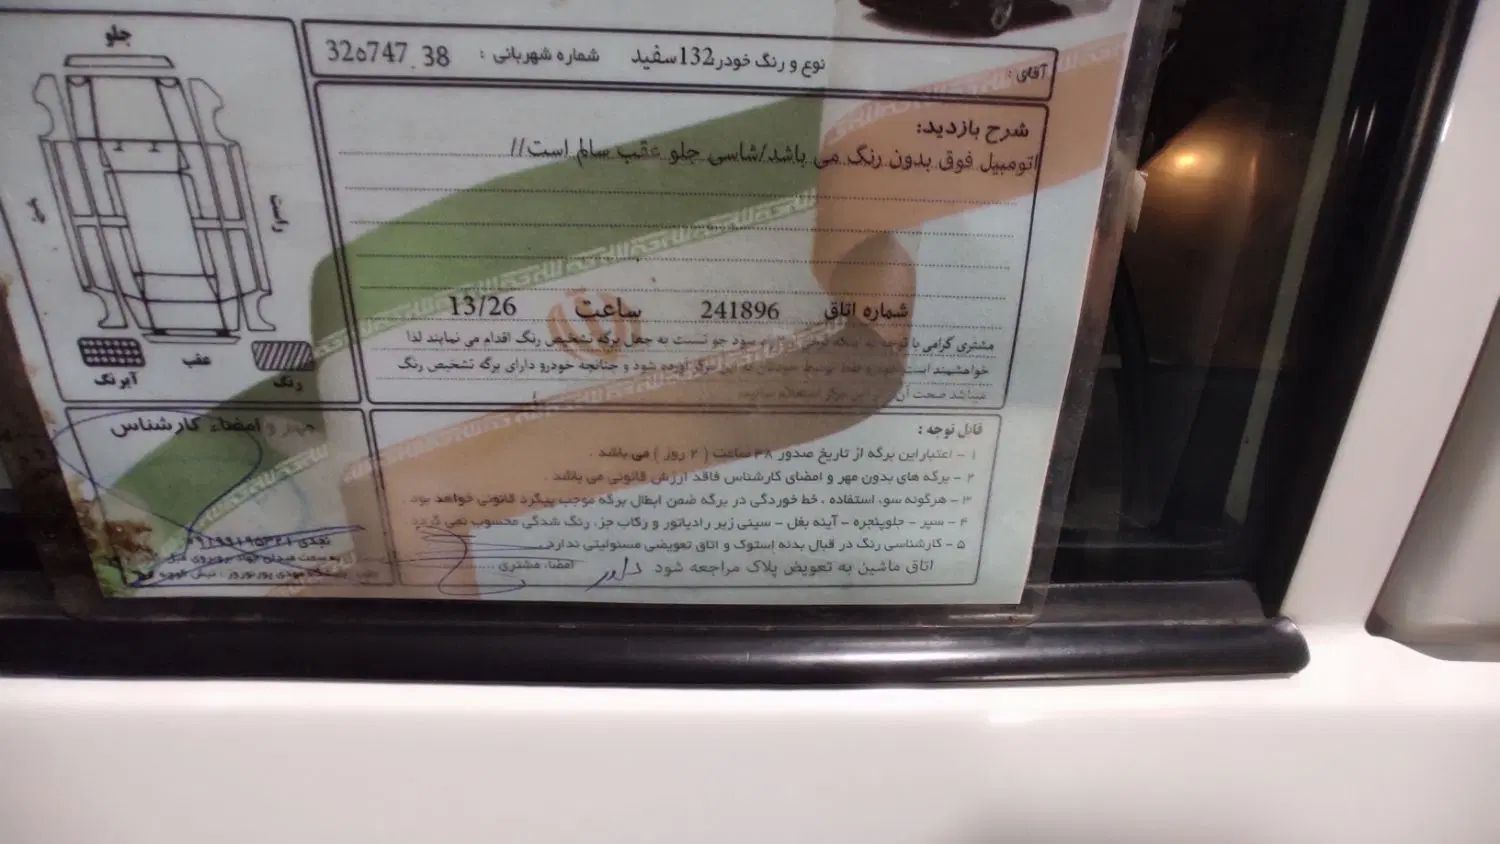 آقای :
نوع و رنگ خودر132سفید شماره شهربانی : 32ه747 38
شرح بازدید:
اتومبیل فوق بدون رنگ می باشد/شاسی جلو عقب سالم است//
شماره اتاق 241896 ساعت 13/26
مشتری گرامی با توجه به اینکه برخی افراد سود جو نسبت به جعل برگه تشخیص رنگ اقدام می نمایند لذا
خواهشمند است خودرو فقط توسط خودتان به این مرکز آورده شود و چنانچه خودرو دارای برگه تشخیص رنگ
میباشد صحت آن از این مرکز استعلام نمائید.
جلو
راست
چپ
عقب
رنگ
آبرنگ
قابل توجه :
۱ - اعتبار این برگه از تاریخ صدور ۴۸ ساعت ( ۲ روز ) می باشد .
۲ - برگه های بدون مهر و امضای کارشناس فاقد ارزش قانونی می باشد .
۳ - هرگونه سوء استفاده ، خط خوردگی در برگه ضمن ابطال برگه موجب پیگرد قانونی خواهد بود .
۴ - سپر - جلوپنجره - آینه بغل - سینی زیر رادیاتور و رکاب جزء رنگ شدگی محسوب نمی گردد .
۵ - کارشناسی رنگ در قبال بدنه استوک و اتاق تعویضی مسئولیتی ندارد.
اتاق ماشین به تعویض پلاک مراجعه شود امضاء مشتری
مهر و امضاء کارشناس
نقدی